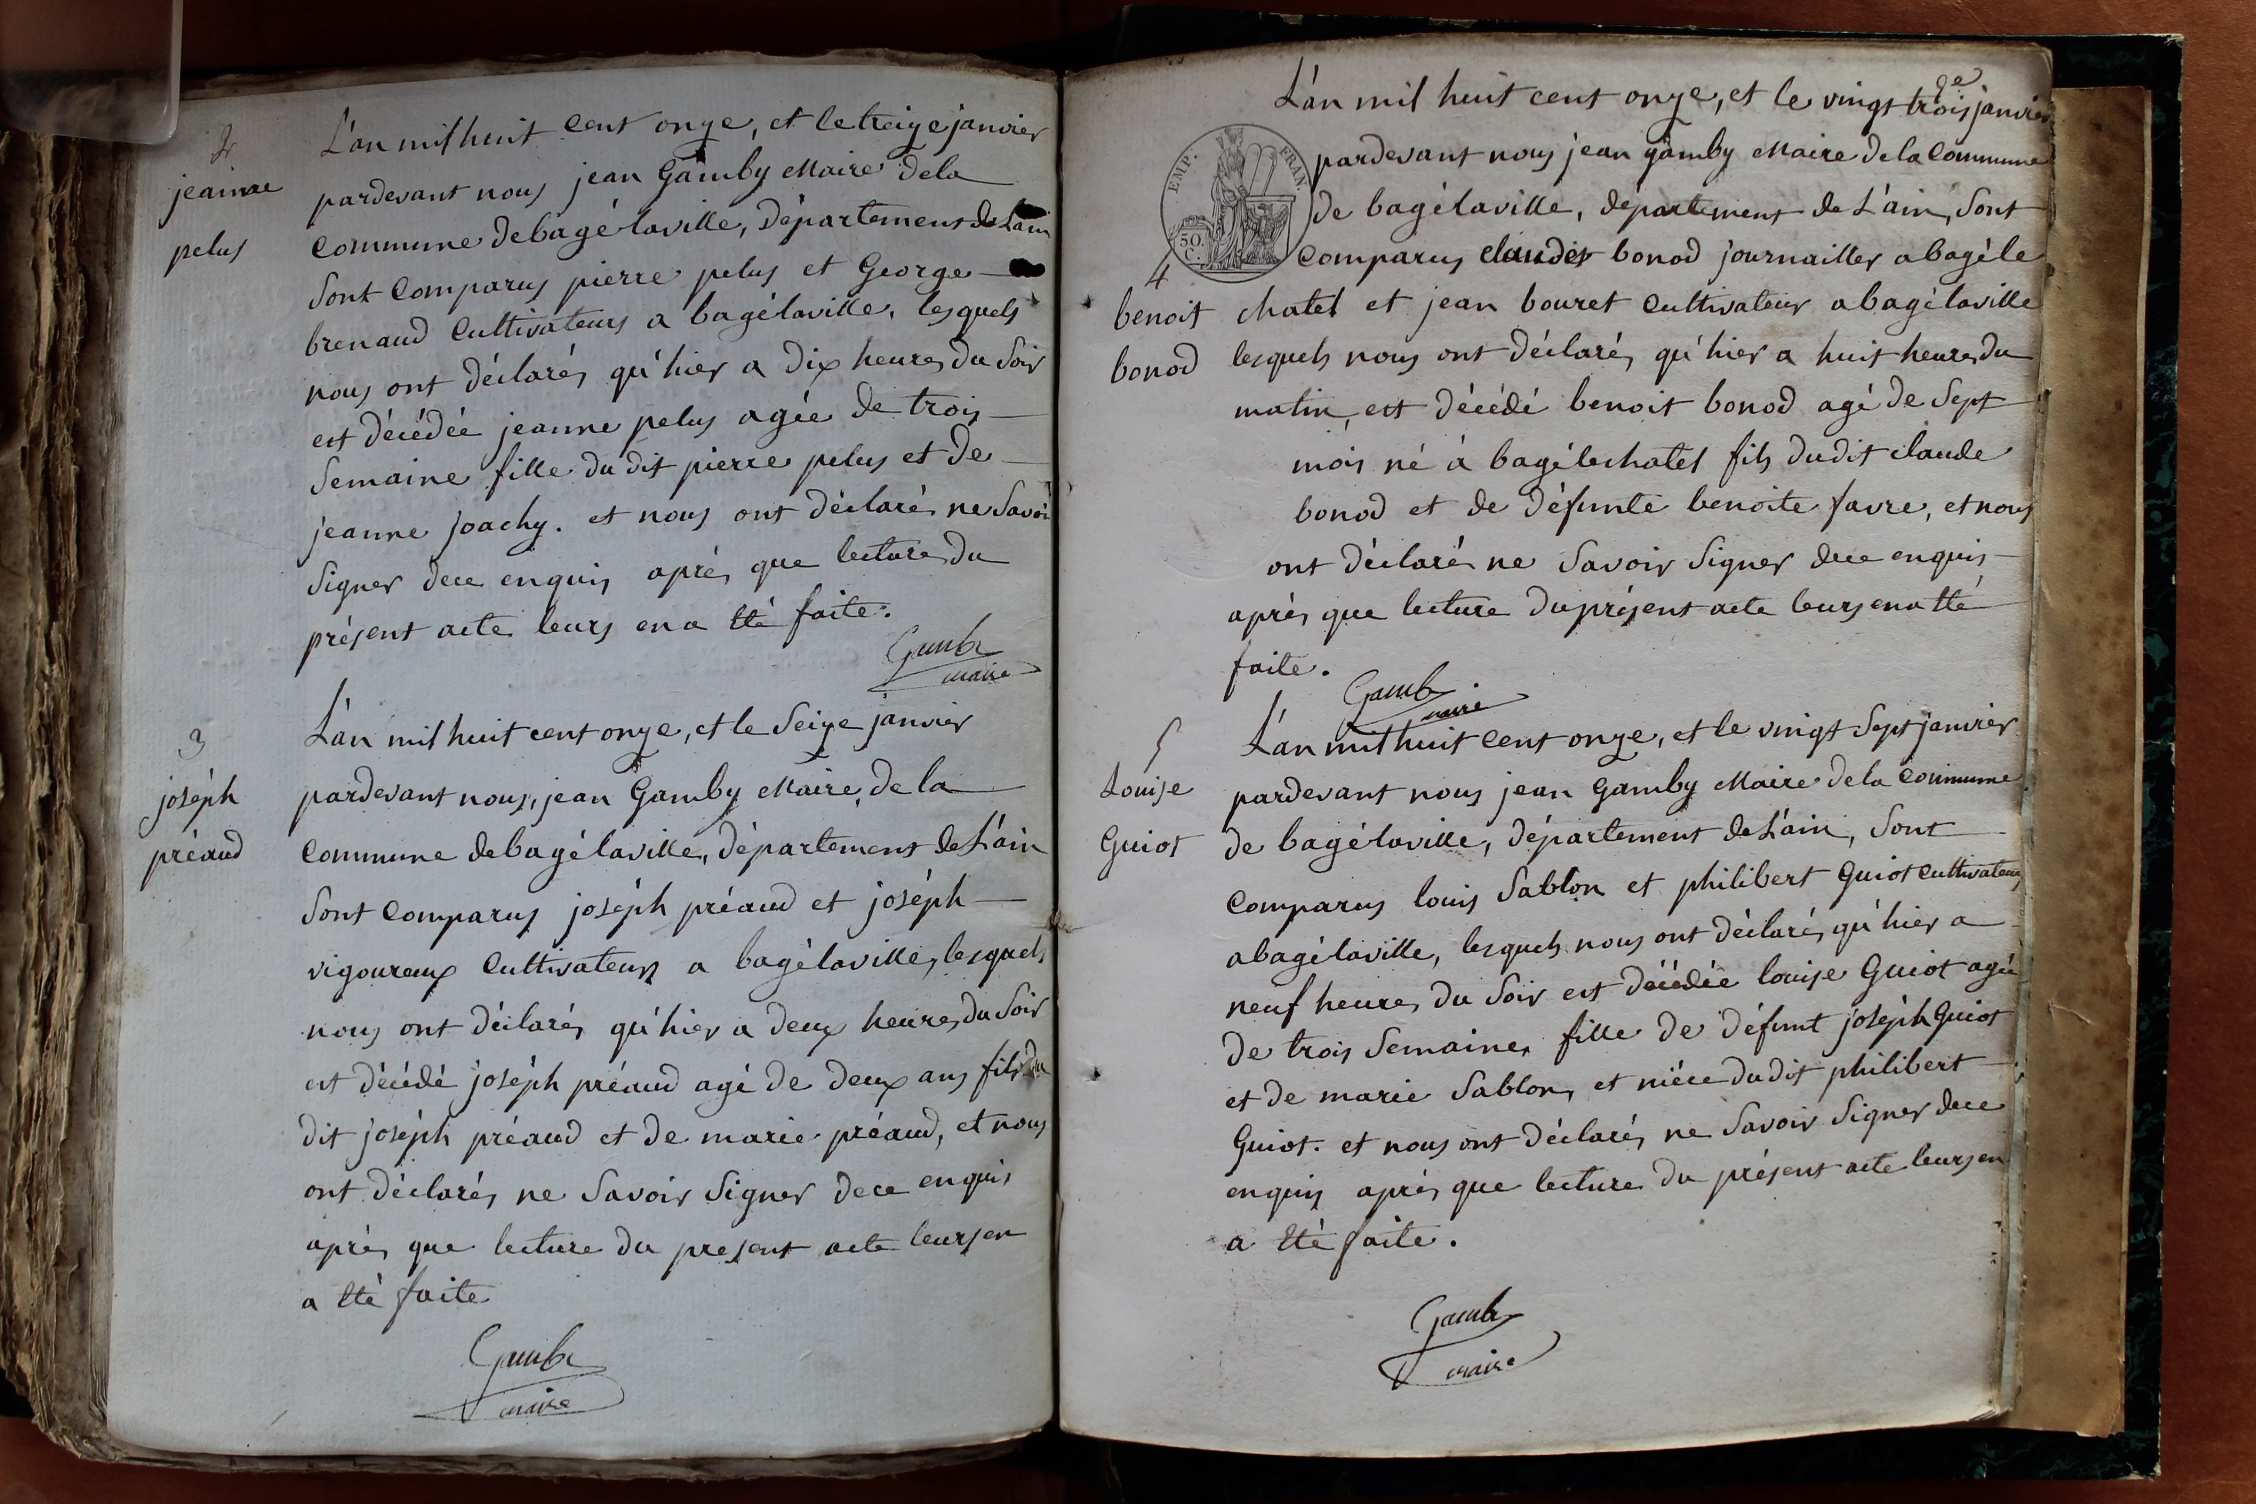 2
jeanne
pelus
L'an mil huit cent onze, et le treize janvier
pardevant nous jean Gamby Maire de la
commune de bagé laville, Département de L'ain
sont comparus pierre pelus et George
brenaud cultivateurs a bagé laville, lesquels
nous ont déclarés qu'hier a dix heures du soir
est décédée jeanne pelus agée de trois
semaine fille du dit pierre pelus et de
jeanne joachy. et nous ont déclarés ne savoir
signer de ce enquis après que lecture du
présent acte leurs en a été faite.
Gamby
maire
3
joséph
préaud
L'an mil huit cent onze, et le seize janvier
pardevant nous, jean Gamby Maire de la
commune de bagé laville, département de L'ain
sont comparus joséph préaud et joséph
vigoureux cultivateurs a bagé laville, lesquels
nous ont déclarés qu'hier a deux heures du soir
est décédé joséph préaud agé de deux ans fils du
dit joséph préaud et de marie préaud, et nous
ont déclarés ne savoir signer de ce enquis
après que lecture du present acte leurs en
a été faite
Gamby
maire
L'an mil huit cent onze, et le vingt trois janvier
EMP. FRAN.
50.
C.
pardevant nous jean gamby Maire de la commune
de bagé laville, département de L'ain, sont
comparus claude bonod journailler a bagé le
4
benoit
bonod
chatel et jean bouret cultivateur a bagé laville
lesquels nous ont déclarés qu'hier a huit heures du
matin, est décédé benoit bonod agé de sept
mois né à bagé le chatel fils du dit claude
bonod et de défunte benoite favre, et nous
ont déclarés ne savoir signer de ce enquis
après que lecture du présent acte leurs en a été
faite.
Gamby
maire
5
Louise
Guiot
L'an mil huit cent onze, et le vingt sept janvier
pardevant nous jean Gamby Maire de la commune
de bagé laville, département de L'ain, sont
comparus louis sablon et philibert Guiot cultivateurs
a bagé laville, lesquels nous ont déclarés qu'hier a
neuf heures du soir est décédée louise Guiot agée
de trois semaines fille de défunt joséph Guiot
et de marie sablon, et niéce du dit philibert
Guiot. et nous ont déclarés ne savoir signer de ce
enquis après que lecture du présent acte leurs en
a été faite.
Gamby
maire